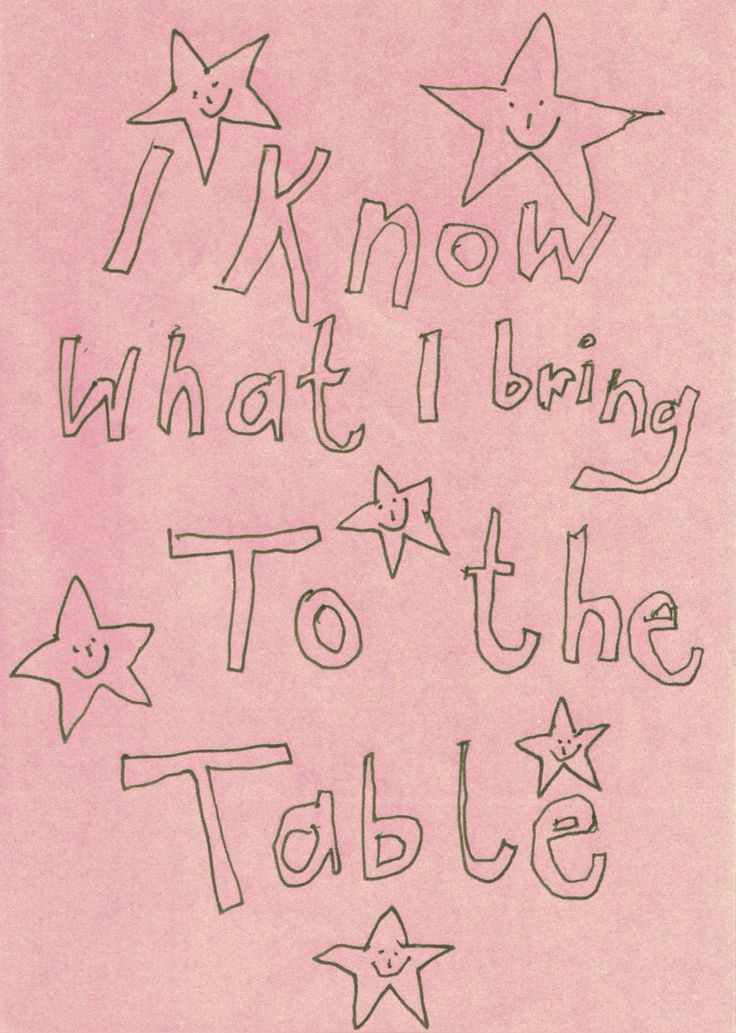 I Know
What I bring
To the
Table